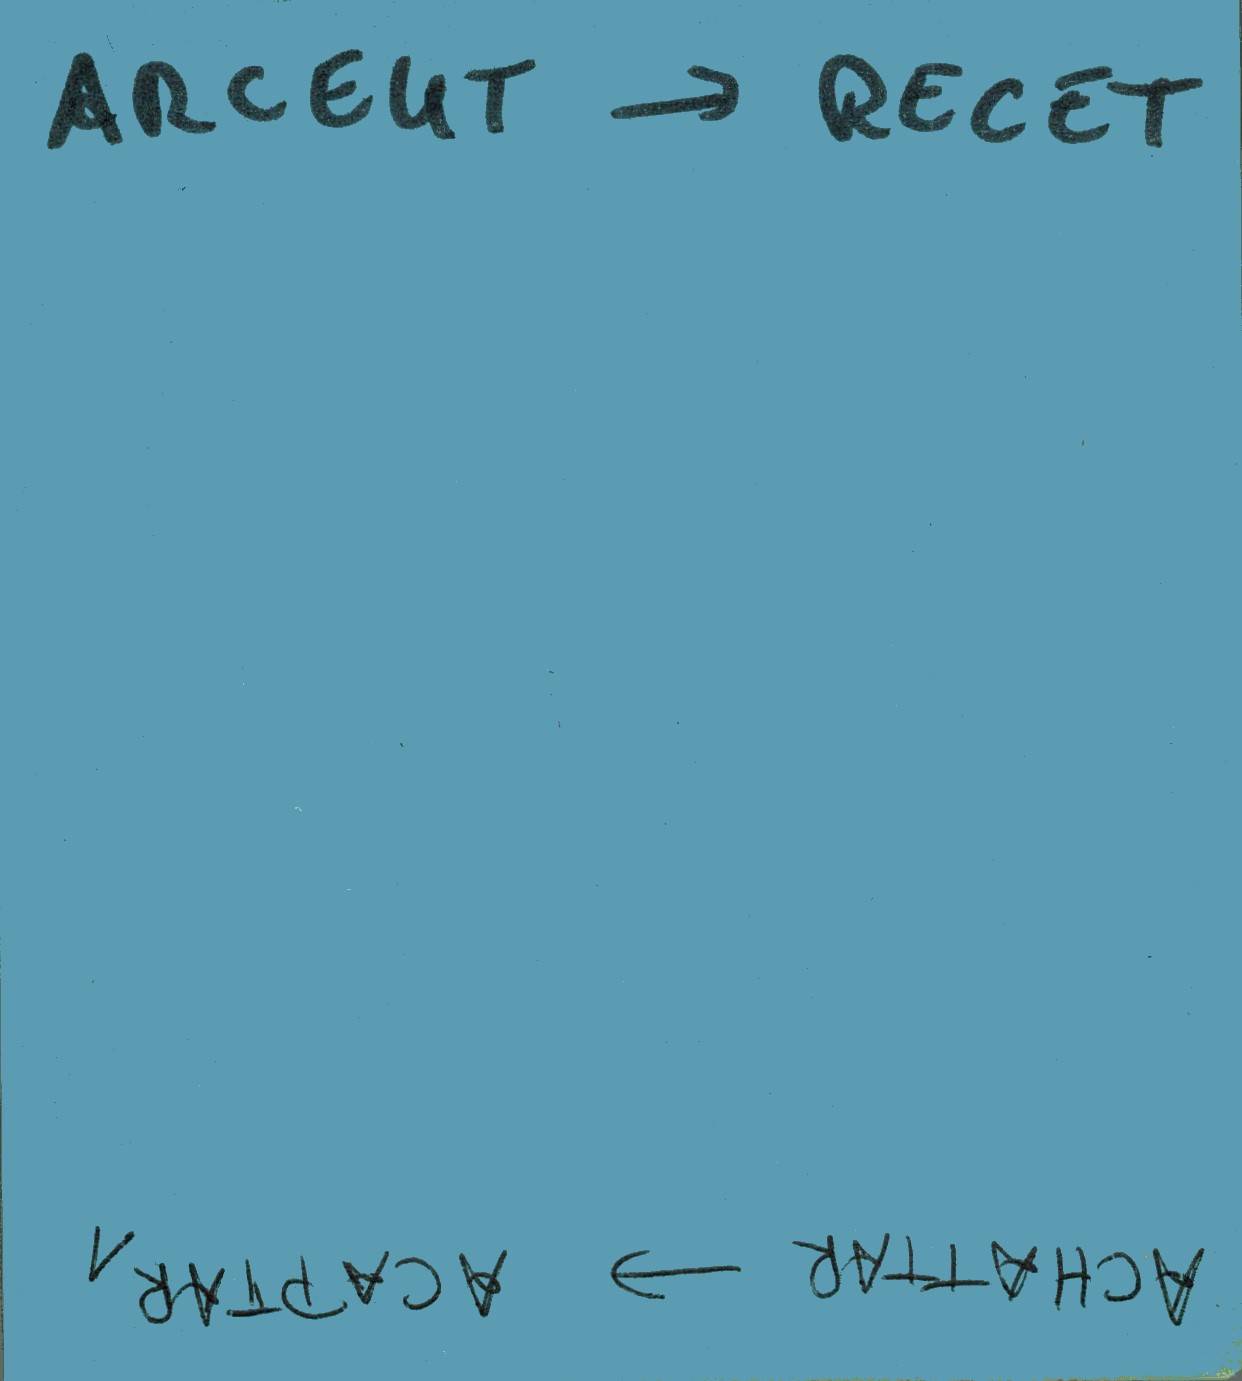 ARCEUT → RECET
ACHATTAR → ACAPTAR 1